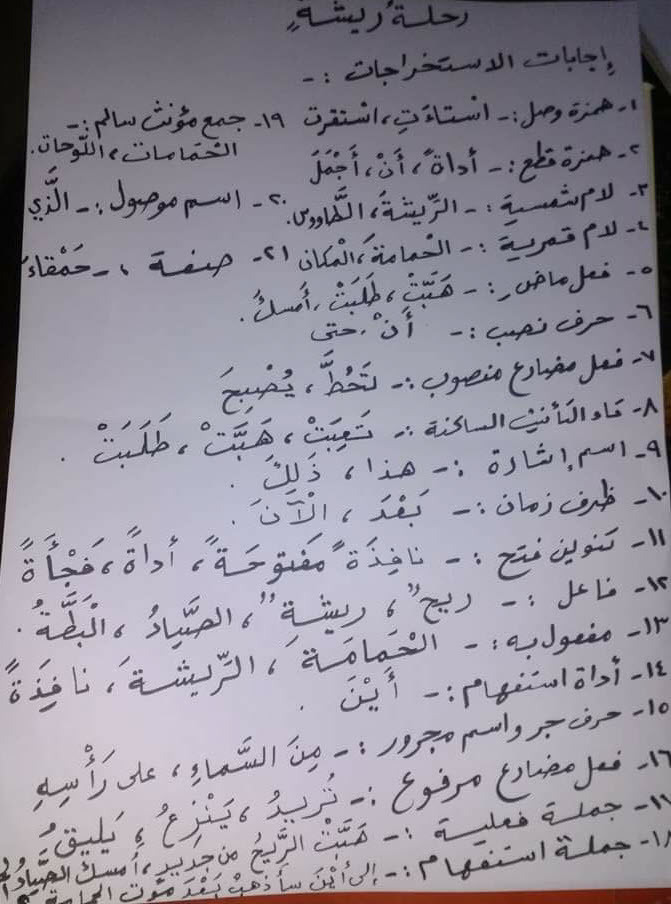 رحلة ريشةٍ
إجابات الاستخراجات :-
١- همزة وصل:- استاءَت، استقرت
١٩- جمع مؤنث سالم:-
الحَمامات، اللّوحات.
٢- همزة قطع:- أداةً، أَنْ، أَجْمَلَ
٣- لام شمسية:- الرِّيشَةُ، الطّاووس.
٢٠- اسم موصول:- الَّذي
٤- لام قمرية:- الْحمامة، الْمكان
٢١- صفة :- حَمْقاءُ
٥- فعل ماضٍ:- هَبَّتْ، طَلَبَتْ، أمسكَ.
٦- حرف نصب:- أَنْ، حتى
٧- فعل مضارع منصوب:- تَحُطَّ، يُصْبِحَ
٨- تاء التأنيث الساكنة :- تَعِبَتْ، هَبَّتْ، طَلَبَتْ.
٩- اسم إشارة :- هذا، ذَلِكَ.
١٠- ظرف زمان:- بَعْدَ، الْآنَ.
١١- تنوين فتح:- نافِذَةً مَفتوحَةً، أداةً، فَجْأَةً
١٢- فاعل :- ريحٌ، ريشةٌ، الصَّيادُ، الْبَطَّةُ.
١٣- مفعول به:- الْحَمامَةَ، الرّيشةَ، نافِذَةً
١٤- أداة استفهام:- أَيْنَ.
١٥- حرف جر واسم مجرور:- مِنَ السَّماءِ، على رَأْسِهِ
١٦- فعل مضارع مرفوع :- تُريدُ، يَنْزِعُ، يَليقُ
١٧- جملة فعلية :- هَبَّتْ الرّيحُ من جديد، أمسكَ الصَّيادُ
١٨- جملة استفهام :- إلى أَيْنَ سأذهبُ بَعْدَ موت الحمامة